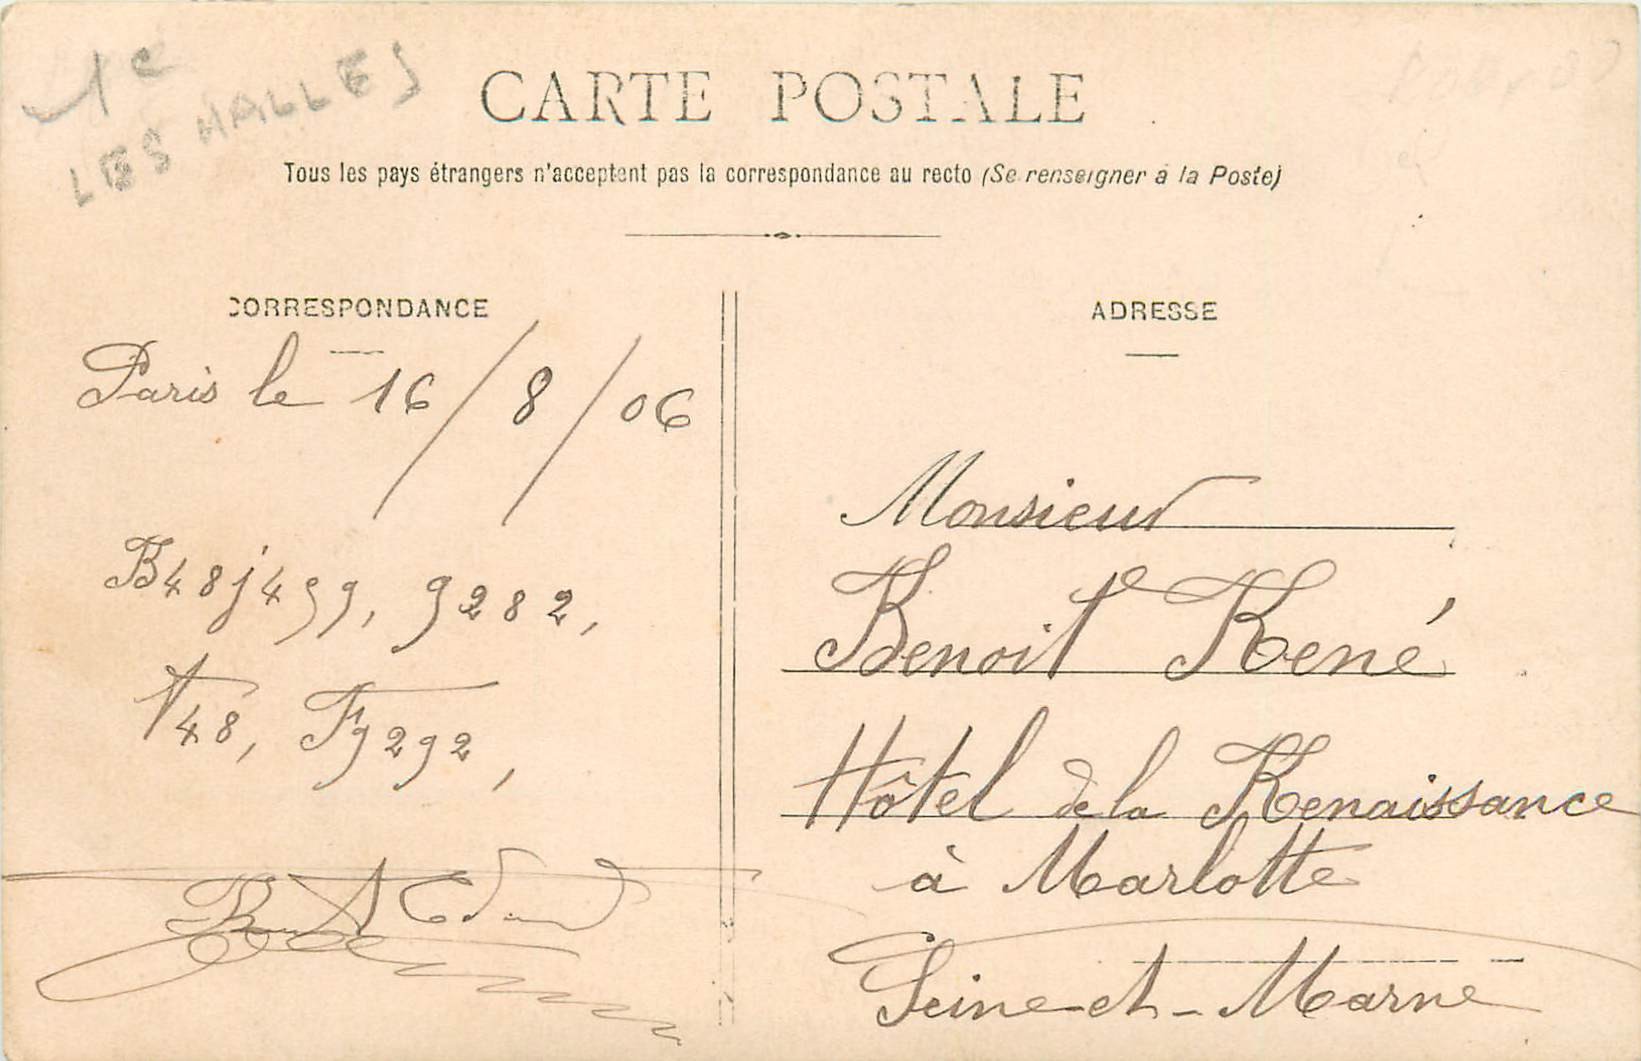 1e
LES HALLES
CARTE POSTALE
Tous les pays étrangers n'acceptent pas la correspondance au recto (Se renseigner à la Poste)
CORRESPONDANCE
Paris le 16/8/06
B48j499, 9282,
T48, F9292,
ADRESSE
Monsieur
Benoit René
Hôtel de la Renaissance
à Marlotte
Seine-et-Marne